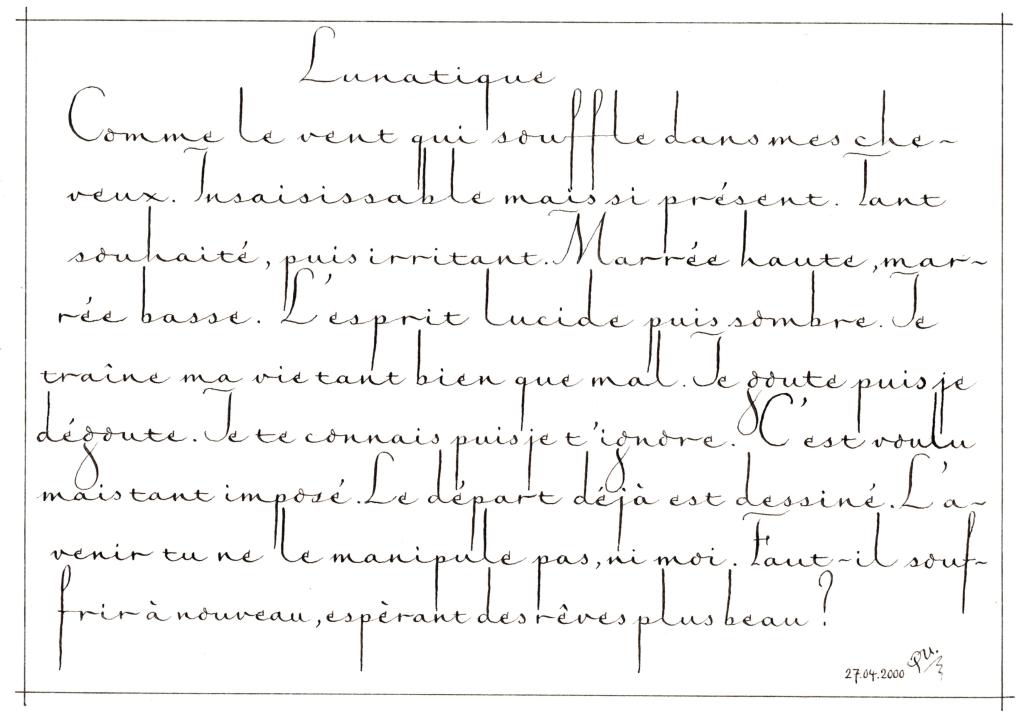 Lunatique
Comme le vent qui souffle dans mes che-
veux. Insaisissable mais si présent. Tant
souhaité, puis irritant. Marrée haute, mar-
rée basse. L'esprit lucide puis sombre. Je
traîne ma vie tant bien que mal. Je goute puis je
dégoute. Je te connais puis je t'ignore. C'est voulu
mais tant imposé. Le départ déjà est dessiné. L'a-
venir tu ne le manipule pas, ni moi. Faut-il souf-
frir à nouveau, espèrant des rêves plus beau?
27.04.2000